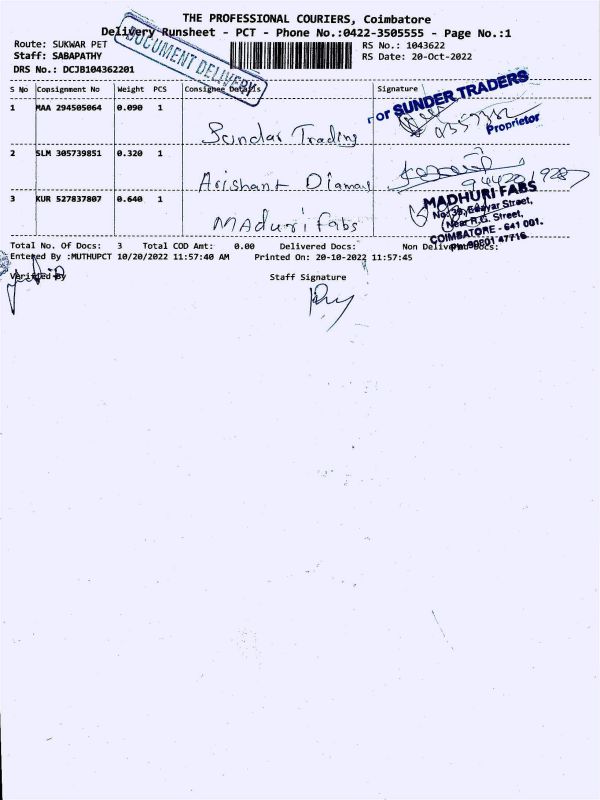 THE PROFESSIONAL COURIERS, Coimbatore
Delivery Runsheet - PCT - Phone No.:0422-3505555 - Page No.:1
DOCUMENT DELIVERY
Route: SUKWAR PET
RS No.: 1043622
Staff: SABAPATHY
RS Date: 20-Oct-2022
DRS No.: DCJB104362201
S No Consignment No Weight PCS Consignee Details Signature
1 MAA 294505064 0.090 1
For SUNDER TRADERS
Sundar Trading
Proprietor
2 SLM 305739851 0.320 1
Arishant Diamay
3 KUR 527837807 0.640 1
Maduri fabs
MADHURI FABS
Street,
Near R.G. Street,
COIMBATORE - 641 001.
Total No. Of Docs: 3 Total COD Amt: 0.00 Delivered Docs: Non Delivered Docs:
Entered By :MUTHUPCT 10/20/2022 11:57:40 AM Printed On: 20-10-2022 11:57:45
Verified By Staff Signature